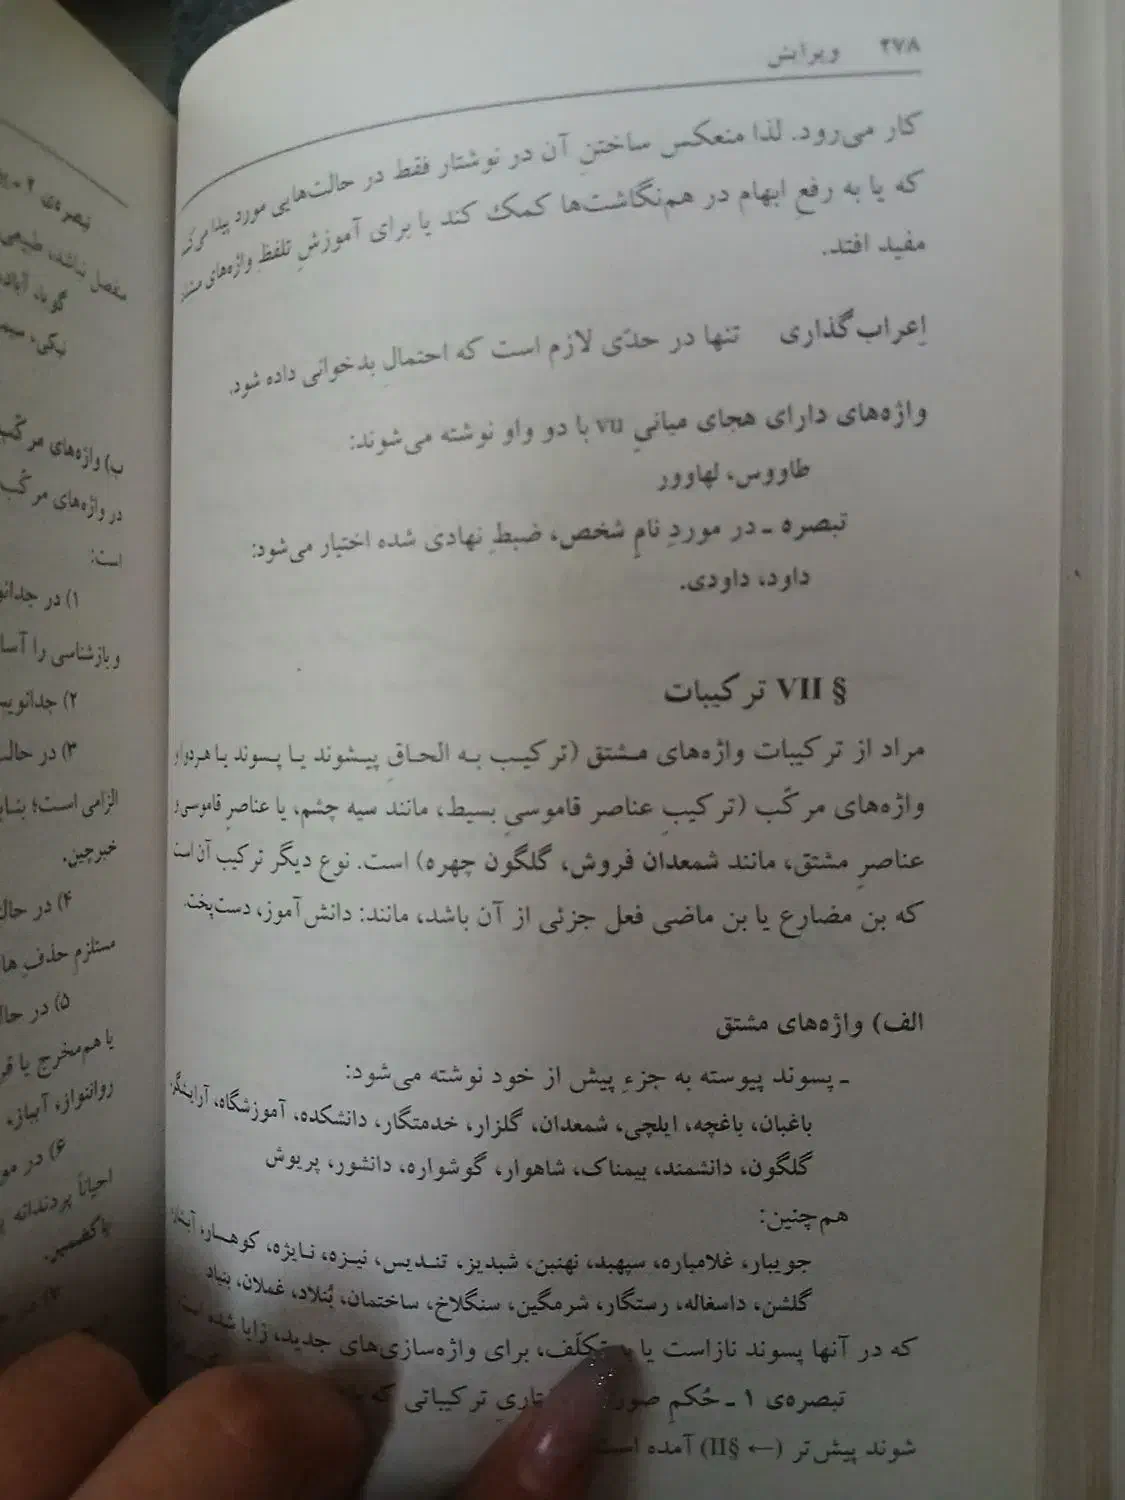 ۲۷۸ ویرایش
کار می‌رود. لذا منعکس ساختنِ آن در نوشتار فقط در حالت‌هایی مورد پیدا می‌کند
که یا به رفعِ ابهام در هم‌نگاشت‌ها کمک کند یا برای آموزشِ تلفظِ واژه‌های
مفید افتد.
اِعراب‌گذاری تنها در حدّی لازم است که احتمالِ بدخوانی داده شود.
واژه‌های دارای هجای میانیِ vu با دو واو نوشته می‌شوند:
طاووس، لهاوور
تبصره ـ در موردِ نامِ شخص، ضبطِ نهادی شده اختیار می‌شود:
داود، داودی.
§ VII ترکیبات
مراد از ترکیبات واژه‌های مشتق (ترکیب به الحاقِ پیشوند یا پسوند یا هردو) و
واژه‌های مرکّب (ترکیبِ عناصر قاموسیِ بسیط، مانند سیه چشم، یا عناصرِ قاموسی و
عناصرِ مشتق، مانند شمعدان فروش، گلگون چهره) است. نوع دیگر ترکیب آن است
که بن مضارع یا بن ماضی فعل جزئی از آن باشد، مانند: دانش‌آموز، دست‌پخت.
الف) واژه‌های مشتق
ـ پسوند پیوسته به جزءِ پیش از خود نوشته می‌شود:
باغبان، باغچه، ایلچی، شمعدان، گلزار، خدمتگار، دانشکده، آموزشگاه، آرایشگر،
گلگون، دانشمند، بیمناک، شاهوار، گوشواره، دانشور، پریوش
هم‌چنین:
جویبار، غلامباره، سپهبد، نهنبن، شبدیز، تندیس، نیزه، نایژه، کوهسار،
گلشن، داسغاله، رستگار، شرمگین، سنگلاخ، ساختمان، بُنلاد، غملان، بنیاد
که در آنها پسوند نازاست یا به تکلّف، برای واژه‌سازی‌های جدید، زایا شده است.
تبصره‌ی ۱ ـ حُکمِ ترکیباتی که
شوند پیش‌تر (← §II) آمده است
تبصره‌ی ۲
منفصل نباشد، طبیعی
نیکی،
ب) واژه‌های مرکّب
در واژه‌های مرکّب
است:
۱) در
و بازشناسی را
۲)
۳) در
الزامی است؛
خبرچین.
۴) در
مستلزمِ حذفِ
۵) در
یا هم‌مخرج یا
رواننواز، آبباز،
۶) در
احیاناً پردندانه